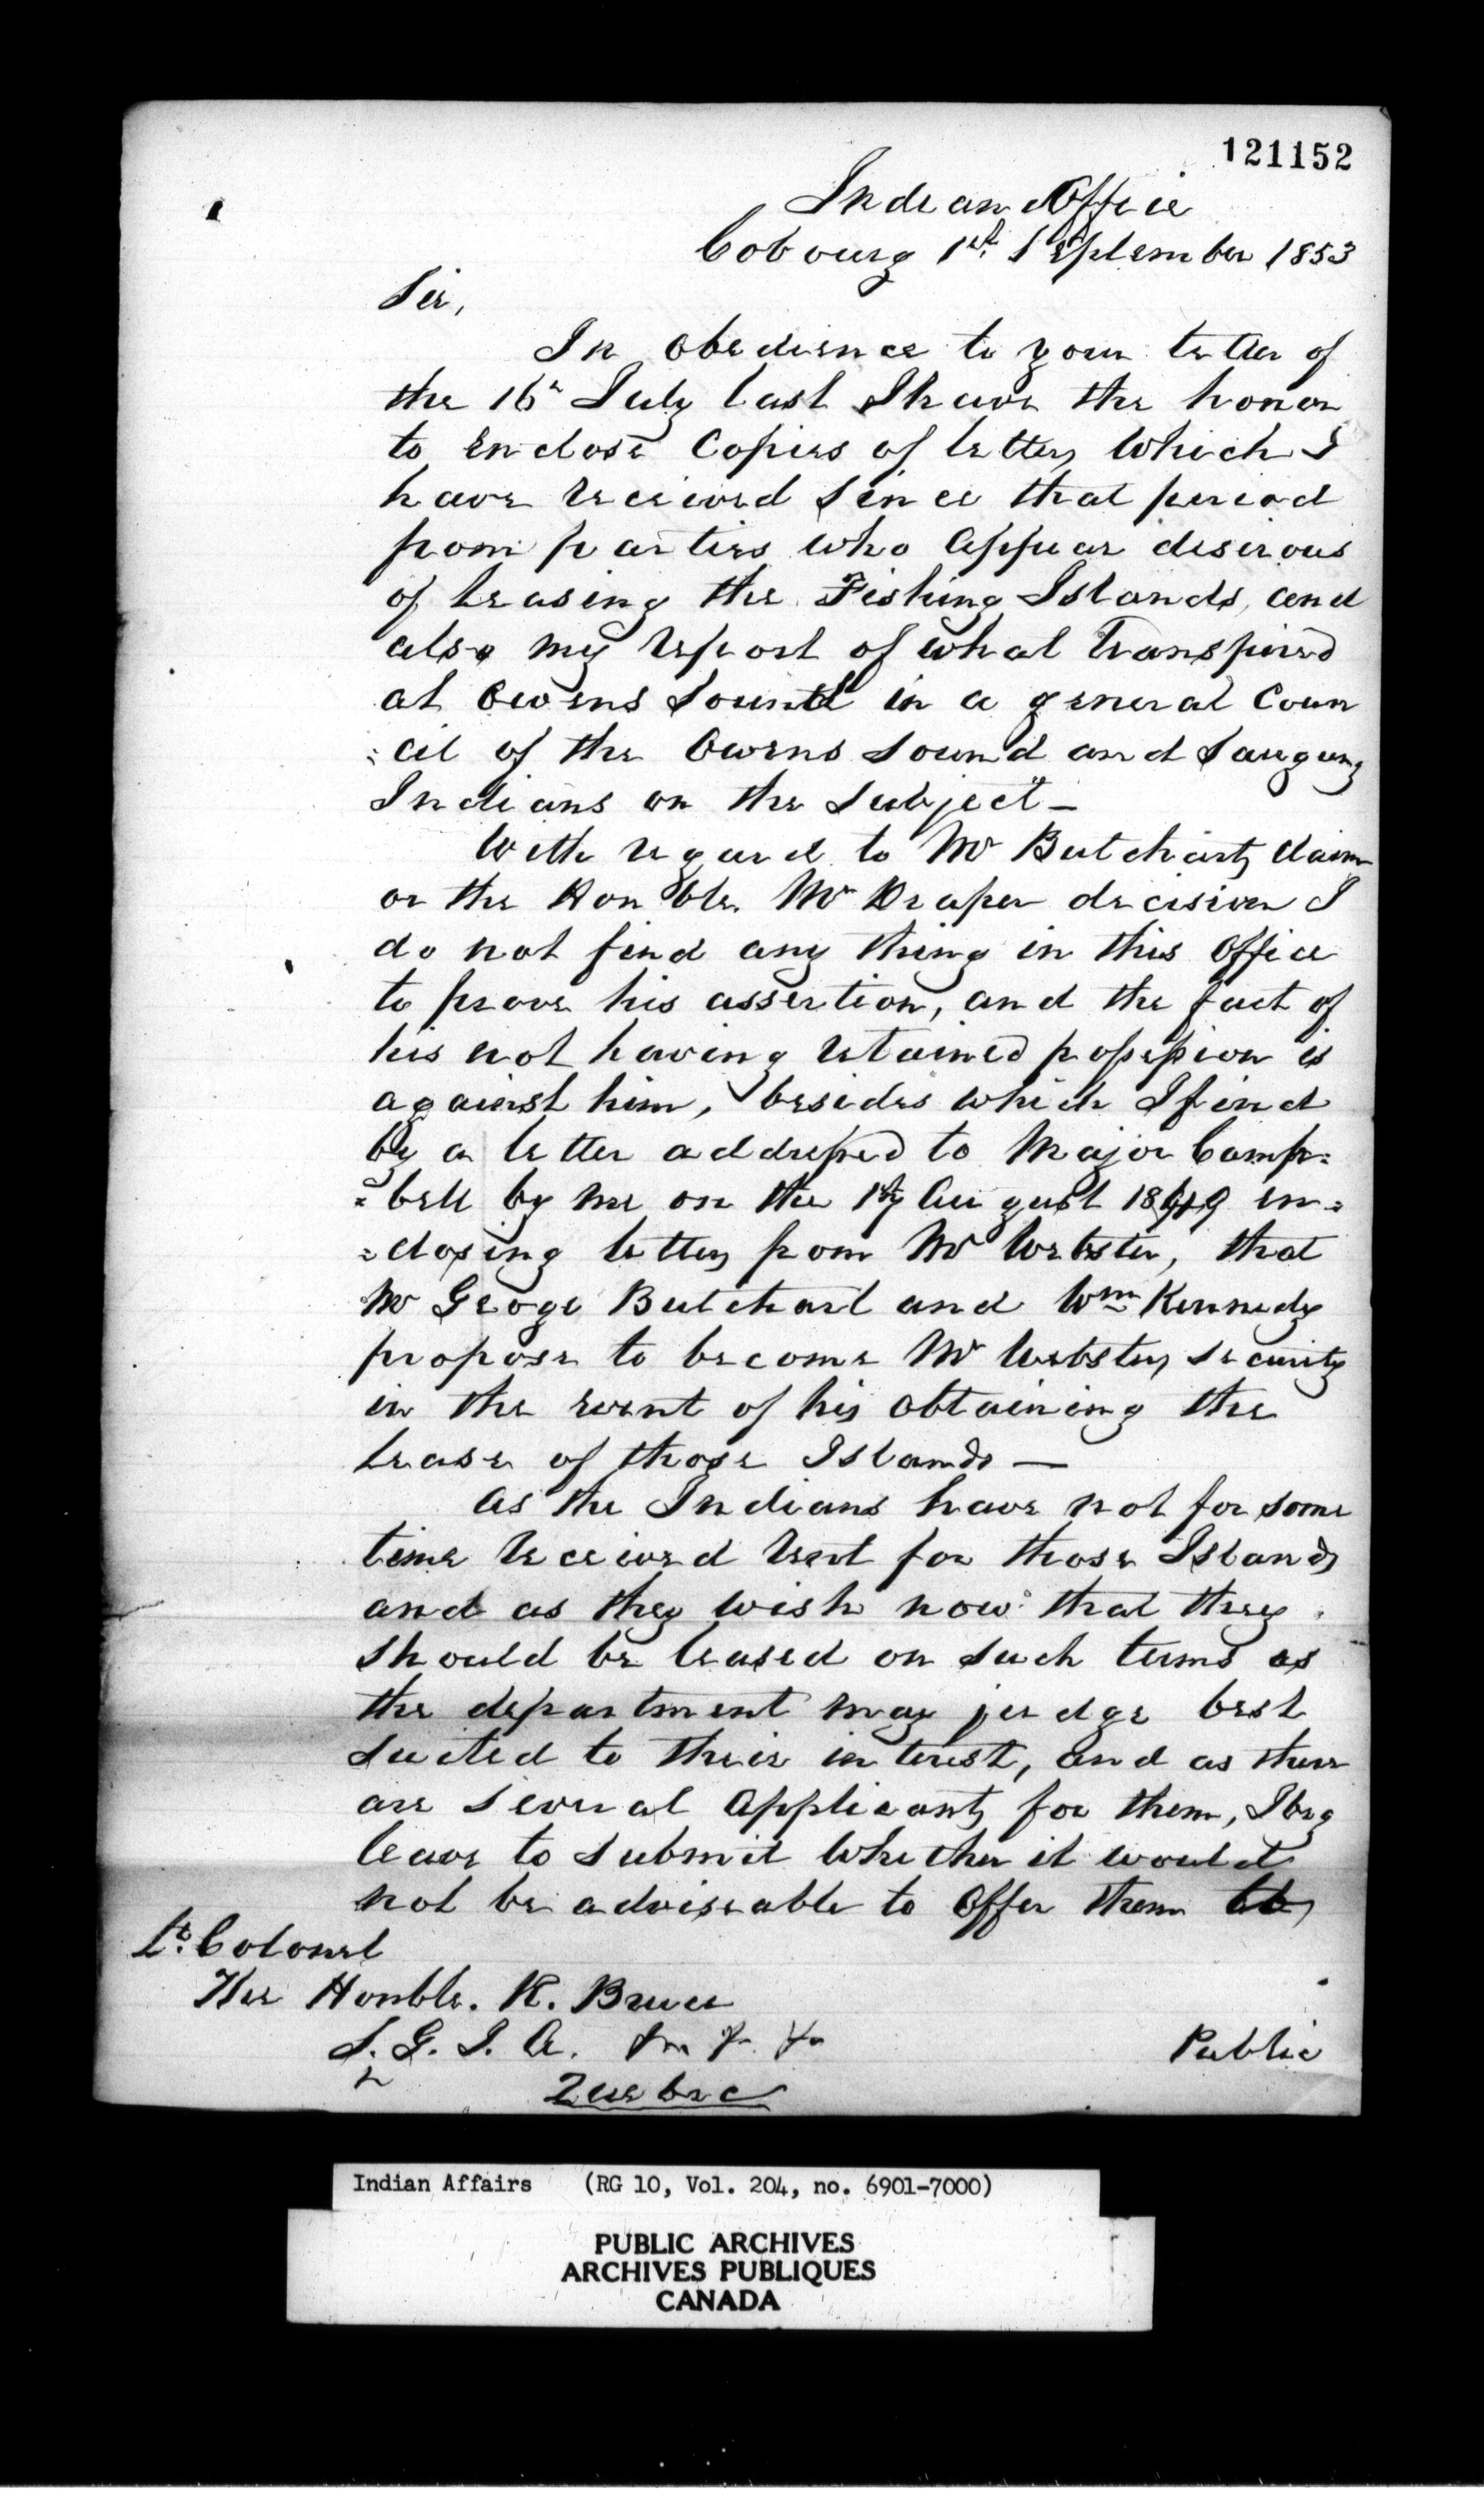 121152
Indian Office
Cobourg 1st September 1853
Sir,
In obedience to your letter of
the 16th July last I have the honor
to enclose Copies of letters which I
have received since that period
from parties who appear desirous
of leasing the Fishing Islands, and
also my report of what transpired
at Owens Sound in a general Coun
=cil of the Owens Sound and Saugung
Indians on the Subject -
With regard to Mr Butcharts claim
or the Honble. Mr Draper decision I
do not find any thing in this office
to prove his assertion, and the fact of
his not having retained possession is
against him, besides which I find
by a letter addressed to Major Camp=
=bell by me on the August 1849 en=
=closing letters from Mr Webster, that
Mr George Butchart and Wm Kennedy
propose to become Mr Websters security
in the event of his obtaining the
lease of those Islands —
As the Indians have not for some
time received rent for those Islands
and as they wish now that they
should be leased on such terms as
the department may judge best
suited to their interest, and as there
are several applicants for them, I beg
leave to submit whether it would
not be adviseable to offer them
Lt. Colonel
The Honble. R. Bruce
S. G. I. A.
Quebec
Public
Indian Affairs (RG 10, Vol. 204, no. 6901-7000)
PUBLIC ARCHIVES
ARCHIVES PUBLIQUES
CANADA